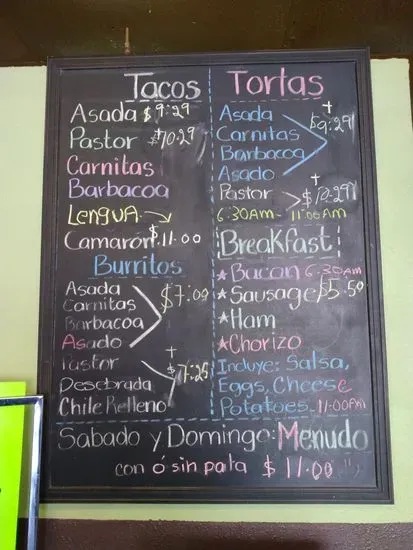 Tacos
Asada $9.29
Pastor $10.29
Carnitas
Barbacoa
Lengua
Camarón $11.00
Burritos
Asada
Carnitas
Barbacoa
Asado
$7.00
Pastor
Desebrada
Chile Relleno
+
$7.25
Tortas
Asada
Carnitas
Barbacoa
Asado
+
$9.29
Pastor
+
$10.29
6:30AM - 11:00AM
Breakfast
*Bacon 6:30AM
*Sausage $5.50
*Ham
*Chorizo
Incluye: Salsa,
Eggs, Cheese
Potatoes 11:00AM
Sabado y Domingo: Menudo
con ó sin pata $11.00